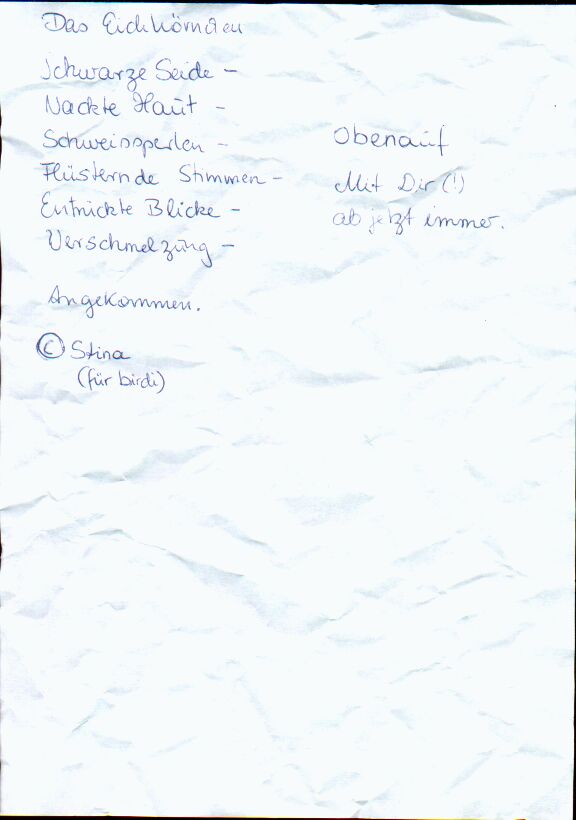 Das Eichhörnchen
Schwarze Seide –
Nackte Haut –
Schweissperlen –
Flüsternde Stimmen –
Entrückte Blicke –
Verschmelzung –
Angekommen.
© Stina
(für birdi)
Obenauf
Mit Dir (!)
ab jetzt immer.